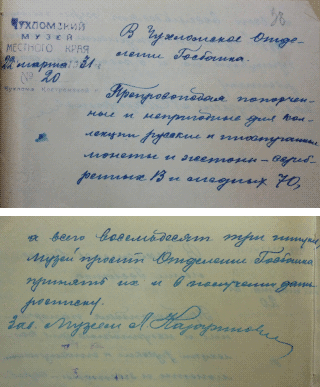 ЧУХЛОМСКИЙ
МУЗЕЙ
МЕСТНОГО КРАЯ
22 марта 1931 г.
№ 20
В Чухломское Отде-
ление Госбанка.
Препровождая попорчен-
ные и непригодные для кол-
лекции русские и иностранные
монеты и жетоны – сереб-
ренных 13 и медных 70,
а всего восемьдесят три штуки,
Музей просит Отделение Госбанка
принять их и в получении дать
расписку.
Зав. Музеем